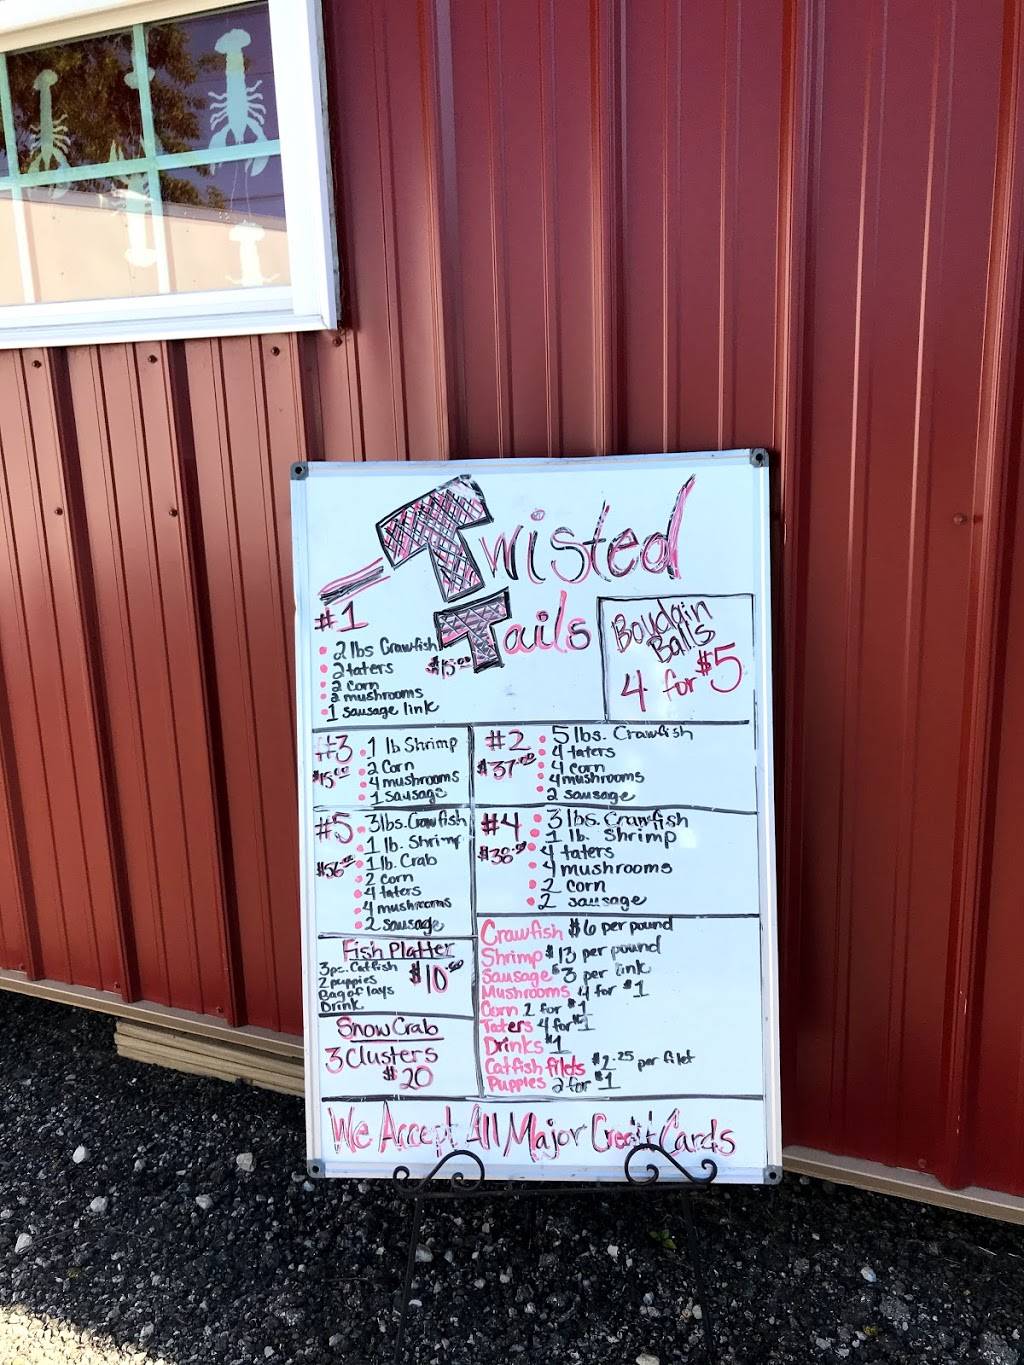 Twisted
Tails
#1
$15.00
2 lbs Crawfish
2 taters
2 corn
2 mushrooms
1 sausage link
Boudain
Balls
4 for $5
#3
$15.00
1 lb Shrimp
2 Corn
4 mushrooms
1 sausage
#2
$37.00
5 lbs. Crawfish
4 taters
4 corn
4 mushrooms
2 sausage
#5
$56.00
3 lbs. Crawfish
1 lb. Shrimp
1 lb. Crab
2 corn
4 taters
4 mushrooms
2 sausage
#4
$38.00
3 lbs. Crawfish
1 lb. Shrimp
4 taters
4 mushrooms
2 corn
2 sausage
Fish Platter
$10.00
3 pc. Catfish
2 puppies
Bag of lays
Drink
Snow Crab
3 Clusters
$20
Crawfish $6 per pound
Shrimp $13 per pound
Sausage $3 per link
Mushrooms 4 for $1
Corn 2 for $1
Taters 4 for $1
Drinks $1
Catfish filets $2.25 per filet
Puppies 2 for $1
We Accept All Major Credit Cards